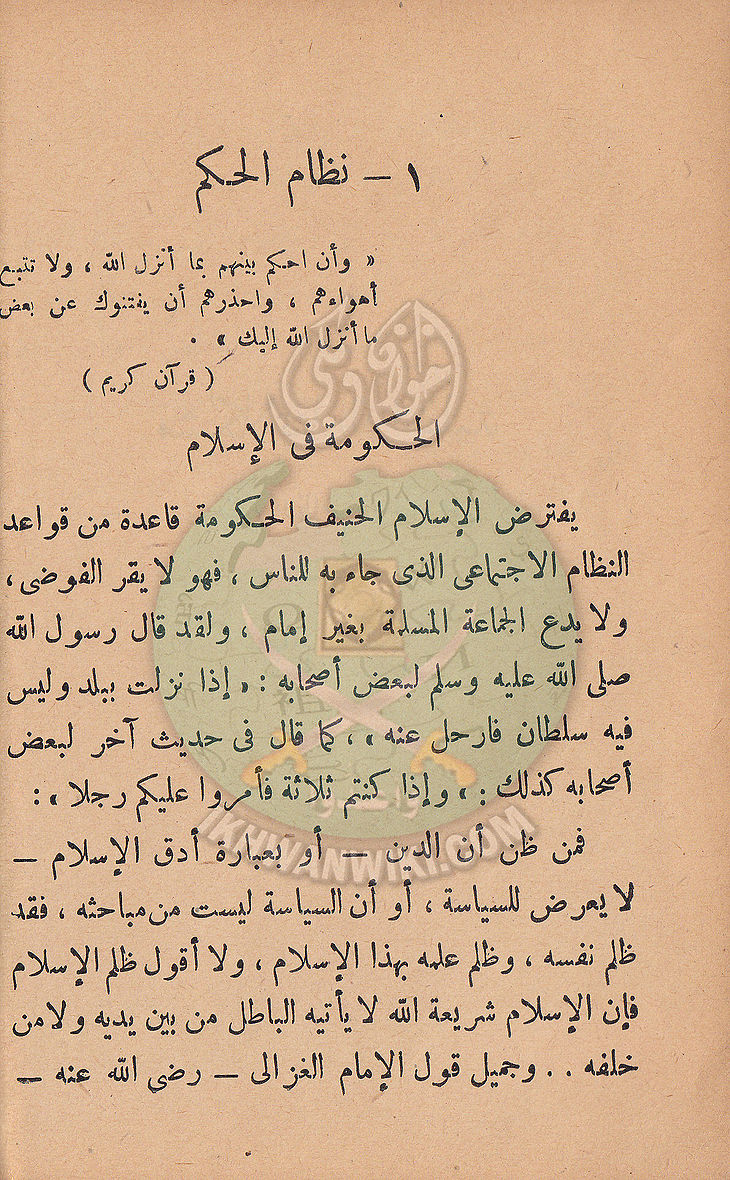 ١ — نظام الحكم
« وأن احكم بينهم بما أنزل الله ، ولا تتبع
أهواءهم ، واحذرهم أن يفتنوك عن بعض
ما أنزل الله إليك » .
( قرآن كريم )
الحكومة فى الإسلام
يفترض الإسلام الحنيف الحكومة قاعدة من قواعد
النظام الاجتماعى الذى جاء به للناس ، فهو لا يقر الفوضى ،
ولا يدع الجماعة المسلمة بغير إمام ، ولقد قال رسول الله
صلى الله عليه وسلم لبعض أصحابه : « إذا نزلت ببلد وليس
فيه سلطان فارحل عنه » ، كما قال فى حديث آخر لبعض
أصحابه كذلك : « وإذا كنتم ثلاثة فأمروا عليكم رجلا » :
فمن ظن أن الدين — أو بعبارة أدق الإسلام —
لا يعرض للسياسة ، أو أن السياسة ليست من مباحثه ، فقد
ظلم نفسه ، وظلم علمه بهذا الإسلام ، ولا أقول ظلم الإسلام
فإن الإسلام شريعة الله لا يأتيه الباطل من بين يديه ولا من
خلفه . . وجميل قول الإمام الغزالى — رضى الله عنه —
إخوان ويكى
IKHWANWIKI.COM